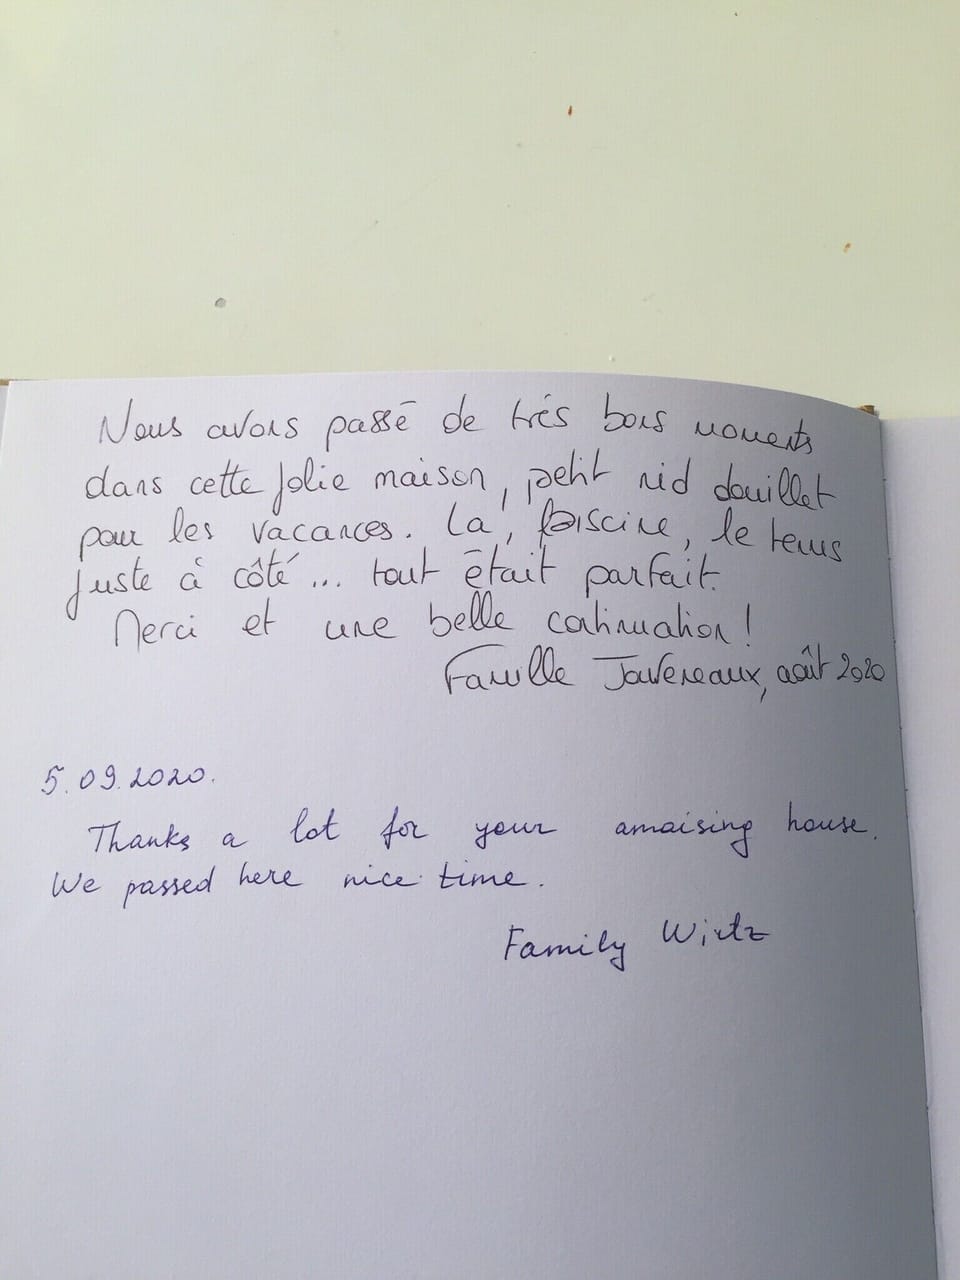 Nous avons passé de très bons moments
dans cette jolie maison, petit nid douillet
pour les vacances. La piscine, le tennis
juste à côté... tout était parfait.
Merci et une belle continuation!
Famille Jouveneaux, août 2020
5.09.2020.
Thanks a lot for your amaising house.
We passed here nice time.
Family Wirtz